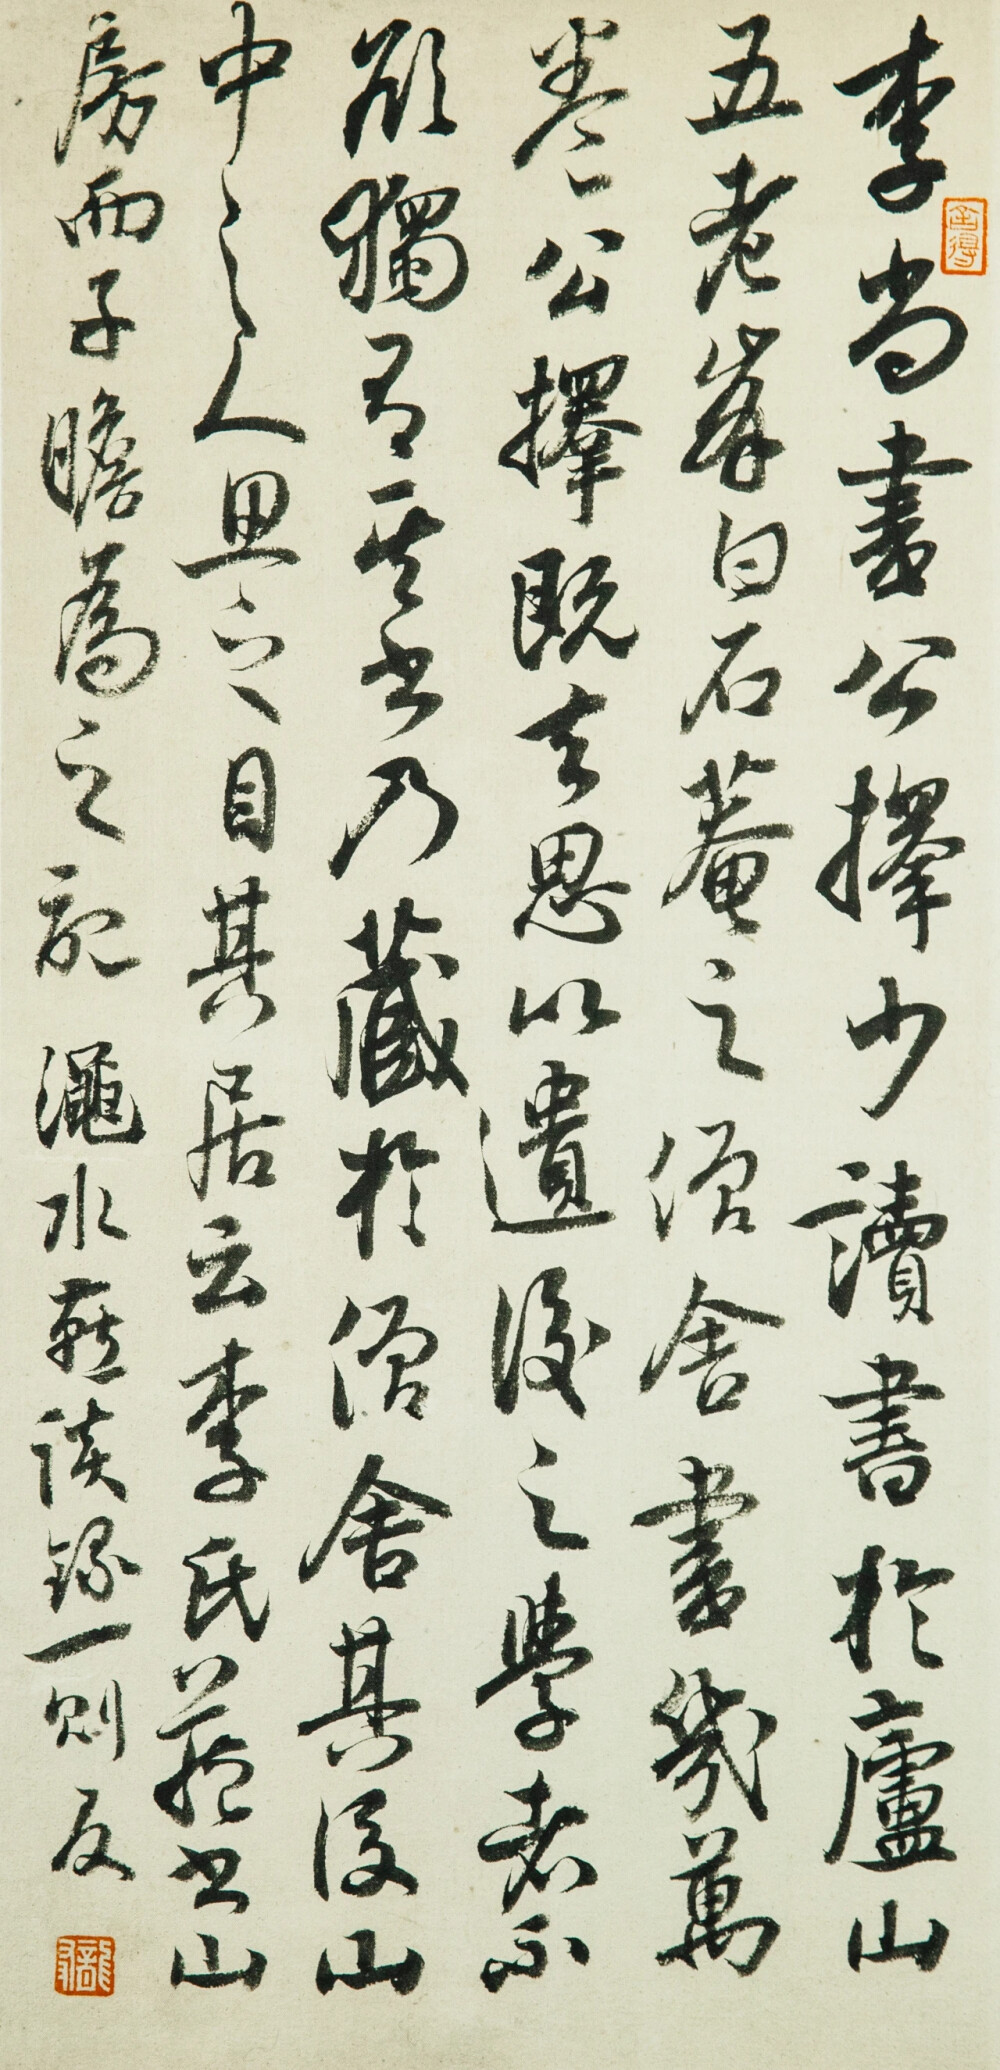 李尚書公擇少讀書於廬山
五老峯白石菴之僧舍書幾萬
卷公擇既去思以遺後之學者不
欲獨有其書乃藏於僧舍其後山
中之人思之目其居云李氏藏書山
房而子瞻為之記 澠水燕談錄一則 友